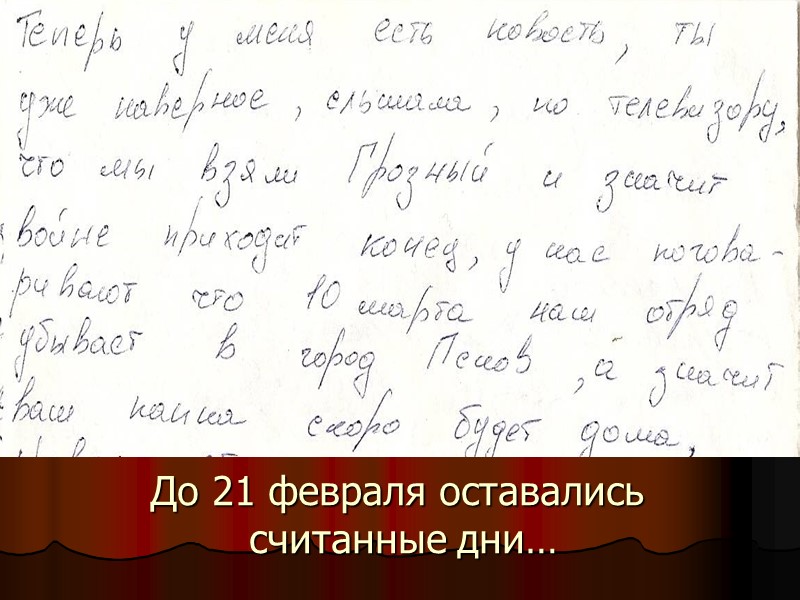 Теперь у меня есть новость, ты
уже наверное, слышала, по телевизору,
что мы взяли Грозный и значит
войне приходит конец, у нас погова-
ривают что 10 марта наш отряд
убывает в город Псков, а значит
ваш папка скоро будет дома,
До 21 февраля оставались
считанные дни...